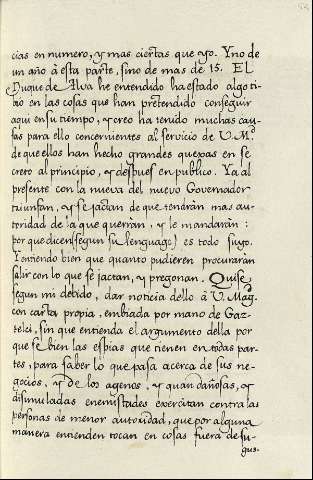 cias en numero, y mas ciertas que ayo. Y no de
un año à esta parte, sino de mas de 15. EL
Duque de Alva he entendido ha estado algo ti-
mo en las cosas que han pretendido conseguir
aqui en su tiempo, y creo ha tenido muchas cau-
sas para ello concernientes al servicio de V. M.d
de que ellos han hecho grandes quexas en se
creto al principio, y despues en publico. Ya al
presente con la nueva del nuevo Governador
triunfan, y se jactan de que tendràn mas au-
toridad de la que querràn, y le mandaràn:
por que dicen (segun su lenguage) es todo suyo.
Y entiendo bien que quanto pudieren procuraràn
salir con lo que se jactan, y pregonan. Quise
segun mi debido, dar noticia dello à V. Mag.
con carta propia, embiada por mano de Gaz-
telu, sin que entienda el argumento della por
que se bien las espias que tienen en todas par-
tes, para saber lo que pasa acerca de sus ne-
gocios, y de los agenos, y quan dañosas, y
disimuladas enemistades exercitan contra las
personas de menor autoridad, que por alguna
manera entienden tocan en cosas fuera de su
gus-